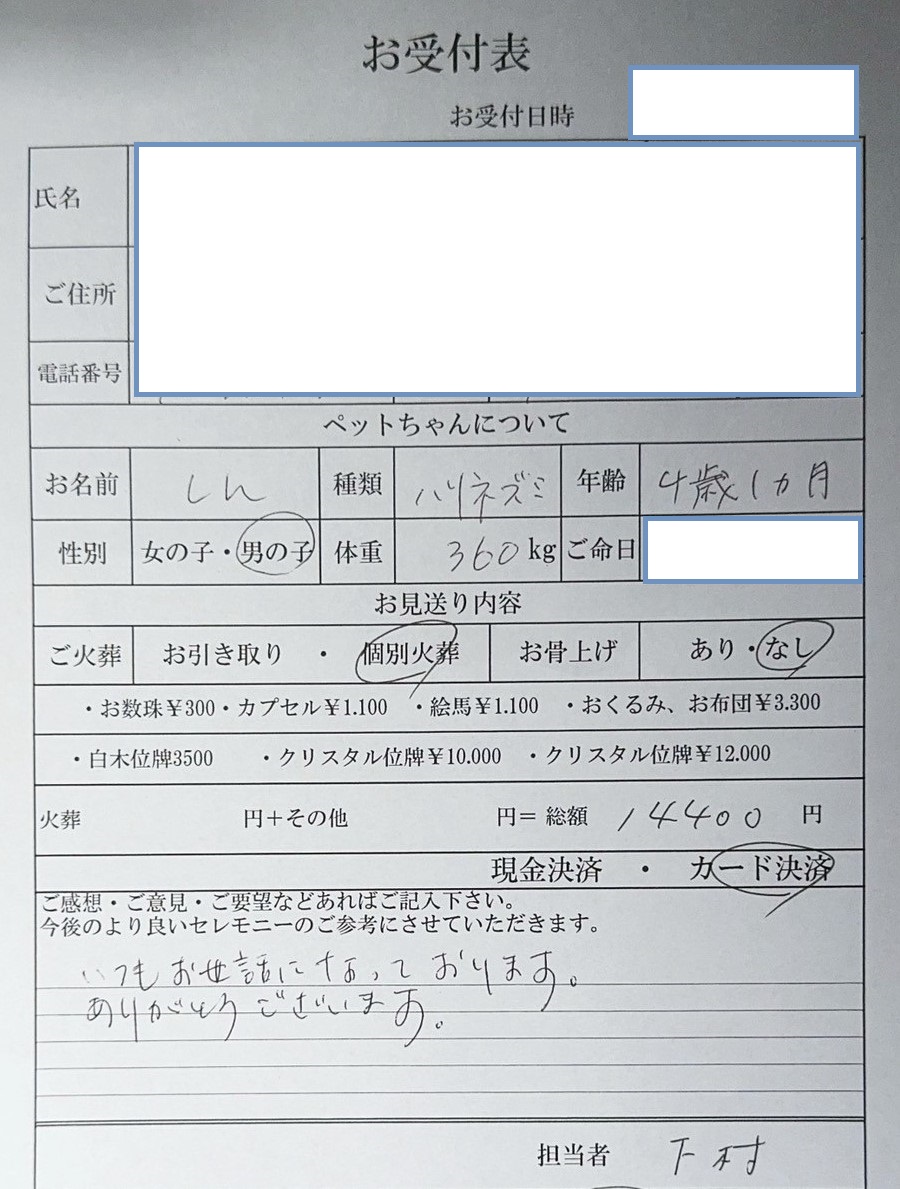 お受付表
お受付日時
氏名
ご住所
電話番号
ペットちゃんについて
お名前 しん 種類 ハリネズミ 年齢 4歳1カ月
性別 女の子・男の子 体重 360 kg ご命日
お見送り内容
ご火葬 お引き取り ・ 個別火葬 お骨上げ あり・なし
・お数珠¥300・カプセル¥1.100 ・絵馬¥1.100 ・おくるみ、お布団¥3.300
・白木位牌3500 ・クリスタル位牌¥10.000 ・クリスタル位牌¥12.000
火葬 円+その他 円= 総額 14400 円
現金決済 ・ カード決済
ご感想・ご意見・ご要望などあればご記入下さい。
今後のより良いセレモニーのご参考にさせていただきます。
いつもお世話になっております。
ありがとうございます。
担当者 下村